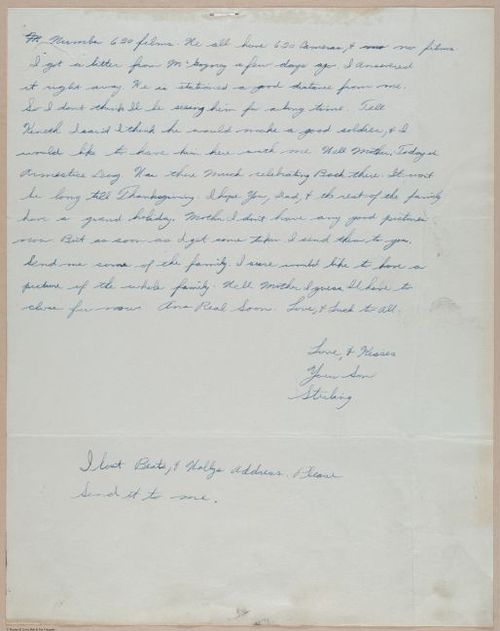 Number 620 films. We all have 620 Cameras, & no films.
I got a letter from McGagny a few days ago. I answered
it right away. He is stationed a good distance from me.
So I don't think I'll be seeing him for a long time. Tell
Keneth I said I think he would make a good soldier, & I
would like to have him here with me. Well Mother, Today is
Armestice Day. Was there much celebrating Back there. It won't
be long till Thanksgiving. I hope You, Dad, & the rest of the family
have a grand holiday. Mother I don't have any good pictures
now. But as soon as I get some taken I send them to you.
Send me some of the family. I sure would like to have a
picture of the whole family. Well Mother I guess I'll have to
close for now. Ans Real Soon. Love, & Luck to All.
Love, & Kisses
Your Son
Sterling
I lost & Wallys Address. Please
Send it to me.